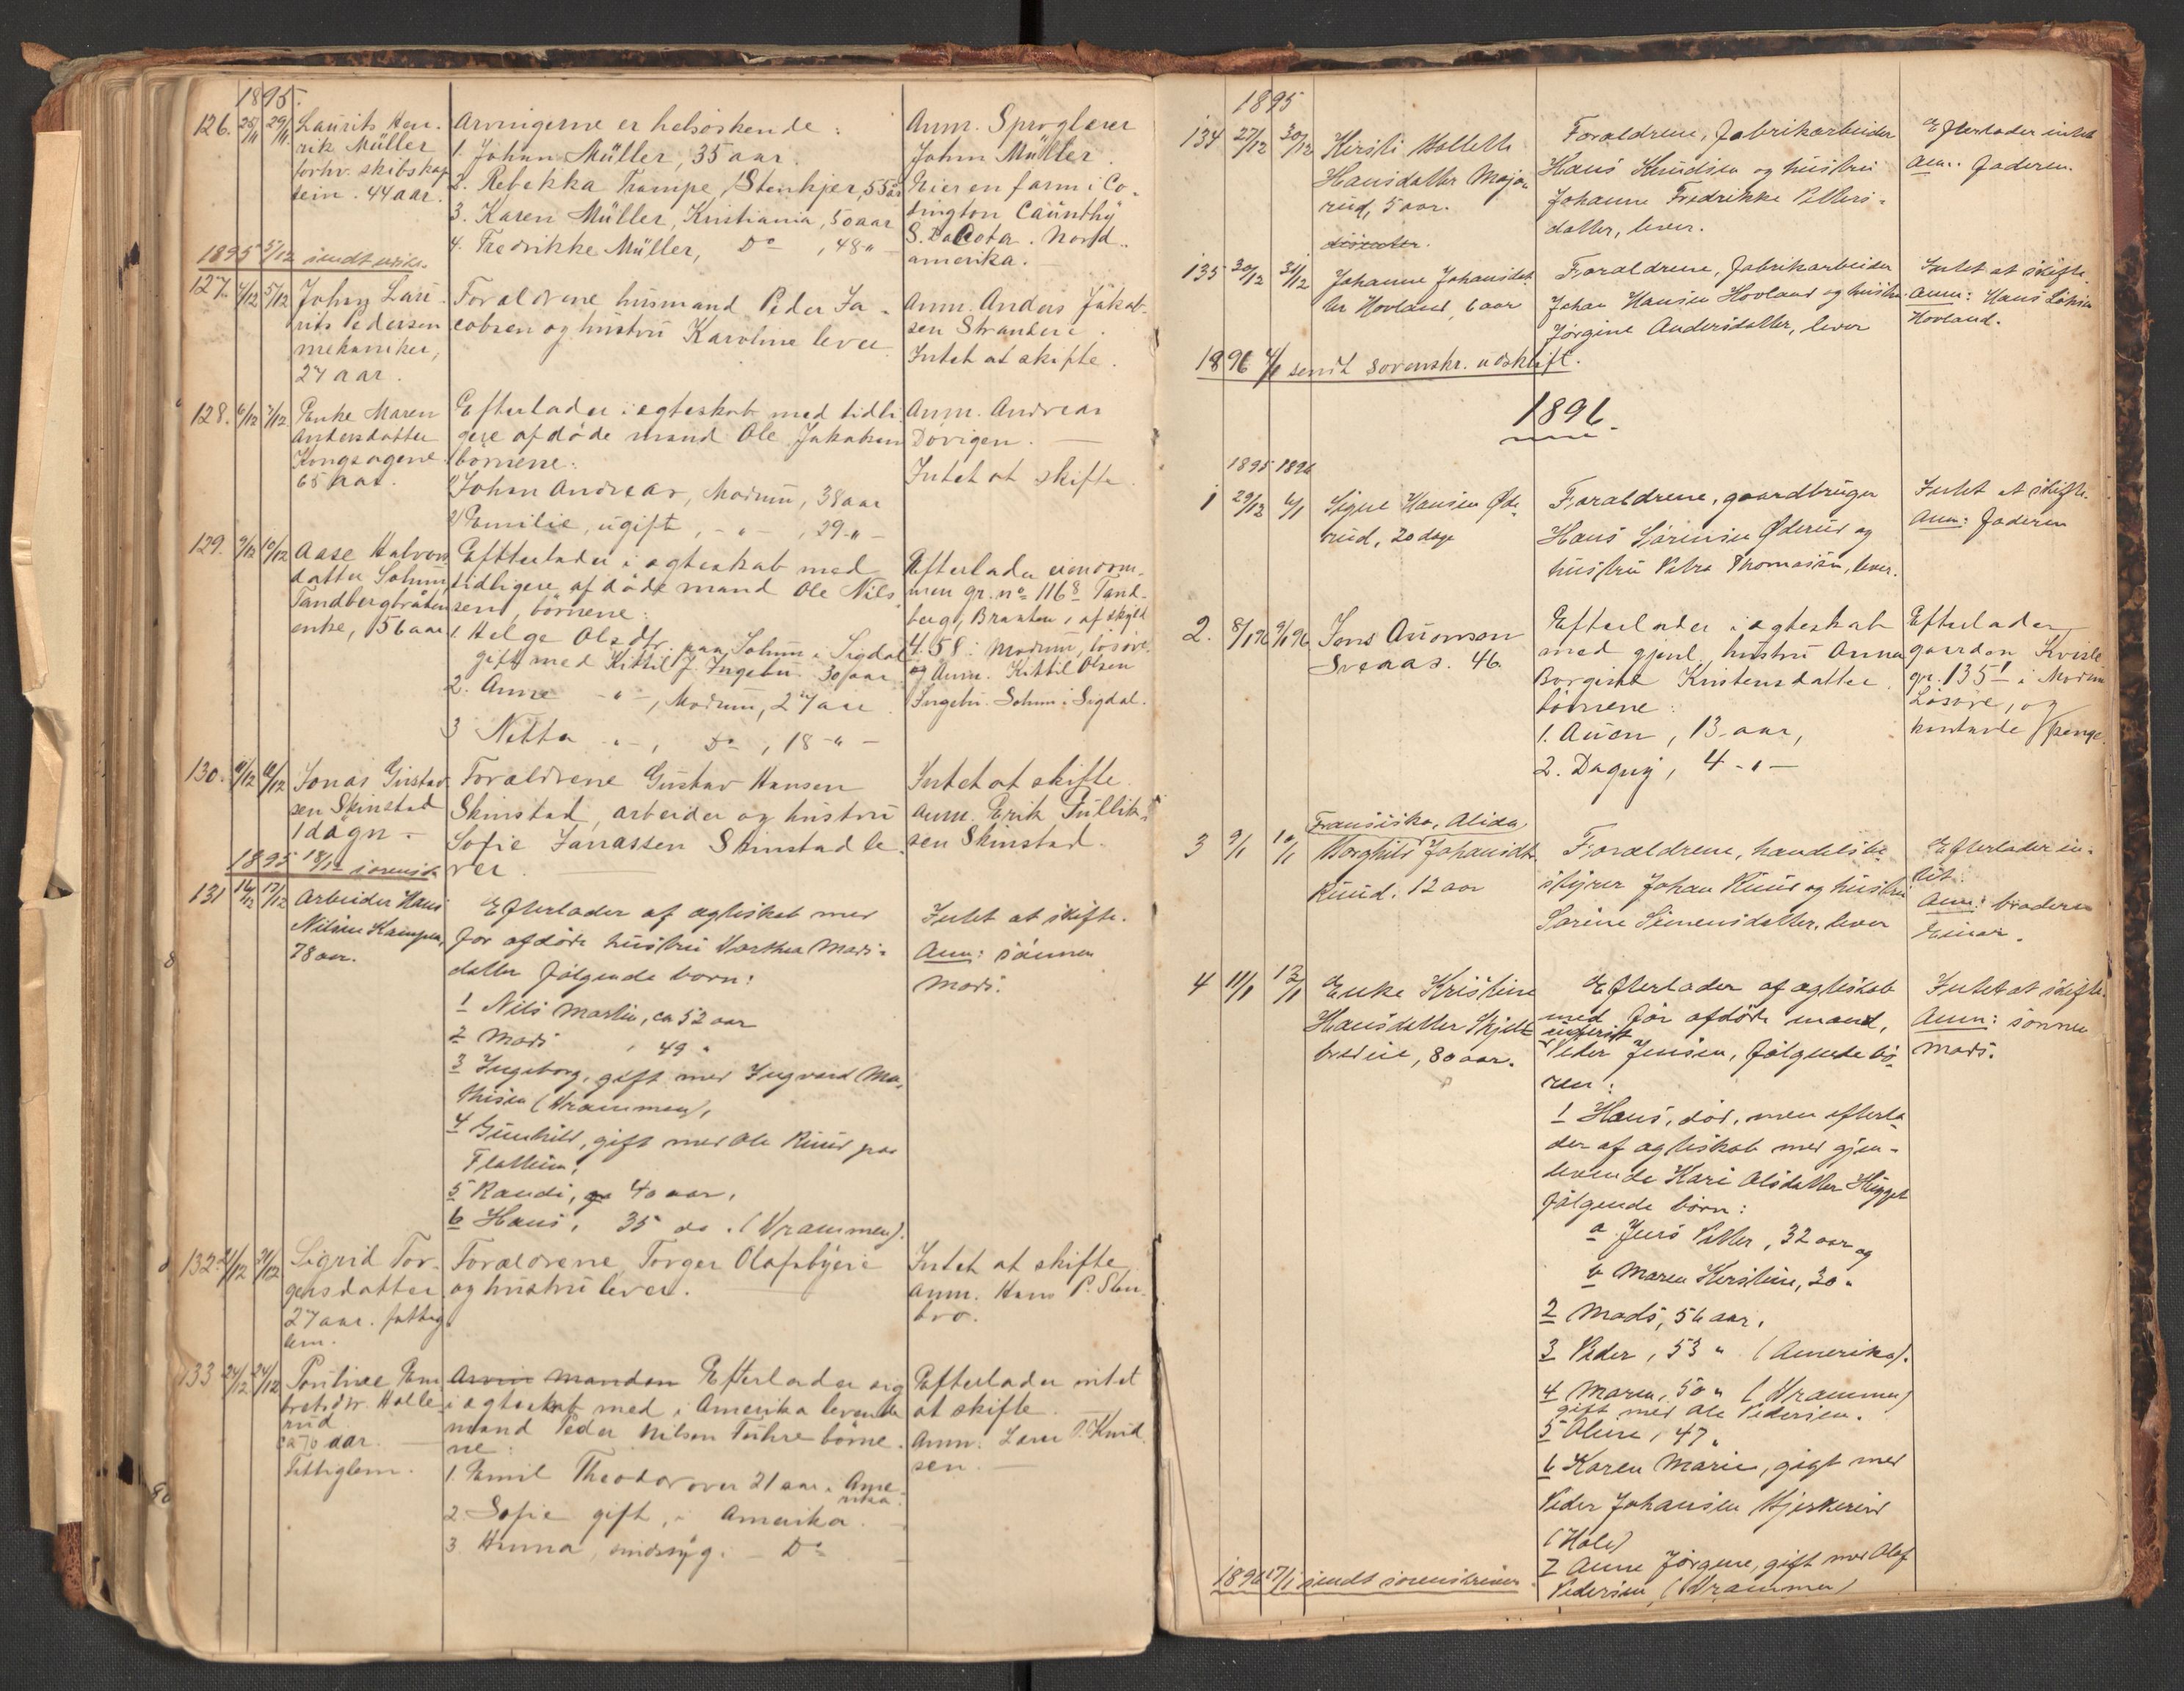 1895.
126. 25/11 29/11 Laurits Hen-
rik Müller
forhv. skibskap
tein. 44 aar.
Arvingerne er helsøskende:
1. Johan Müller, 35 aar.
2. Rebekka Trampe, Stenkjer, 55 aar
3. Karen Müller, Kristiania, 50 aar
4. Fredrikke Müller, Do, 48 " -
Anm. Sproglærer
John Müller.
Eier en farm i Co-
dington Caunthy
S. Dakota. Nord-
amerika.
1895 5/12 sendt
127. 4/12 5/12 Johny Lau-
rits Pedersen
mekaniker,
27 aar.
Forældrene husmand Peder Ja-
cobsen og hustru Karoline lever.
Anm. Anders Jakob-
sen Stranden
Intet at skifte.
128. 6/12 7/12 Enke Maren
Andersdatter
Kongsagene
65 aar.
Efterlader i egteskab med tidli-
gere afdøde mand Ole Jakobsen
børnene:
1) Johan Andreas, Modum, 38 aar
2) Emilie, ugift, - " -, 29 - " -
Anm. Andreas
Dövigen.
Intet at skifte.
129. 9/12 10/12 Aase Halvors
datter Solum,
Tandbergbråten
enke, 56 aar
Eftterlader i egteskab med
tidligere afdøde mand Ole Nils-
sen, børnene:
1. Helge Olsdtr. paa Solum i Sigdal
gift med Kittil J. Ingebu. 30 aar
2. Anne - " -, Modum, 27 aar
3 Netta - " -, Do, 18 - " -
Efterlader eiendom-
men gr. no 116/8 Tand-
berg, Braaten, af skyld
4.58 i Modum, løsøre
og Anm. Kittil Olsen
Ingebu. Solum i Sigdal.
130. 11/12 12/12 Jonas Gustav
sen Skinstad
1 døgn.
Forældrene Gustav Hansen
Skinstad, arbeider og hustru
Sofie Janassen Skinstad le-
ver.
Intet at skifte.
Anm. Erik Tullik-
sen Skinstad.
1895 18/12 sorensk
131 16/12 17/12 Arbeider Hans
Nilsen Kampen,
78 aar.
Efterlader af ægteskab med
før afdøde hustru Marthea Mads-
datter følgende børn:
1 Nils Martin, ca 52 aar
2 Mads , 49 "
3 Ingeborg, gift med Ingvard Ma-
thisen (Drammen),
4 Gunhild, gift med Ole Ruud paa
Flattum,
5 Randi, 40 aar,
6 Hans, 35 do. (Drammen).
Intet at skifte.
Anm: sønnen
Mads.
132 21/12 21/12 Sigrid Tor-
gersdatter
27 aar. fattig
lem.
Forældrene Torger Olafsbyeie
og hustru lever.
Intet at skifte
Anm. Hans P. Sten-
bro.
133 24/12 24/12 Pauline Em
bretsdtr. Halle
rud
ca 70 aar.
Fattiglem.
Arvin manden Efterlader sig
i egteskab med i Amerika levende
mand Peder Nilsen Tuhre børne-
ne:
1. Emil Theodor over 21 aar. Ame-
rika.
2. Sofie gift, i Amerika.
3. Hanna, sindssyg. - Do
Efterlader intet
at skifte.
Anm. Lars O. Knud-
sen.
1895
134 27/12 30/12 Kirsti Mathilde
Hansdatter Majo-
rud, 5 aar.
Forældrene, fabrikarbeider
Hans Knudsen og hustru
Johanne Fredrikke Petters-
datter, lever.
Efterlader intet
Anm. faderen.
135 30/12 31/12 Johanne Johansdat-
ter Hovland, 6 aar
Forældrene, fabrikarbeider
Johan Hansen Hovland og hustru
Jørgine Andersdatter, lever
Intet at skifte.
Anm: Hans
Hovland.
1896 4/1 sendt sorenskr. udskrift.
1896.
1895 1896
1 29/12 4/1 Signe Hansen Øde-
rud, 20 dage
Forældrene, gaardbruger
Hans Sørensen Øderud og
hustru Petra Thomassen, lever.
Intet at skifte.
Anm: faderen
2. 8/1 96 9/1 96 Jens Auonson
Sveaas. 46.
Efterlader i egteskab
med gjenl. hustru Anna
Borgine Kristensdatter.
børnene:
1. Auen, 13 aar,
2. Dagny, 4 - " -
Efterlader
gaarden Kvisle
gr. 135/1 i Modum
Løsøre, og
kontante penge
3 9/1 10/1 Fransiska, Alida
Borghild Johansdtr.
Ruud. 12 aar
Forældrene, handelsbe-
styrer Johan Ruud og hustru
Sørine Simensdatter, lever
Efterlader in-
tet.
Anm: broderen
Einar.
4 11/1 13/1 Enke Kristine
Hansdatter Skjelle-
brædeie, 80 aar.
Efterlader af ægteskab
med før afdøde mand,
Peder Jensen, følgende bø-
ren:
1 Hans, død, men efterla-
der af ægteskab med gjen-
levende Kari Olsdatter Hügget
følgende børn:
a Jens Petter, 32 aar og
b Maren Kirstine, 30 "
2 Mads, 56 aar,
3 Peder, 53 " (Amerika).
4 Maren, 50 " (Drammen)
gift med Ole Pedersen.
5 Oline, 47 "
6 Karen Marie, gift med
Peder Johansen Hjerkerud
(Hole)
7 Anne Jørgene, gift med Olaf
Pedersen (Drammen)
Intet at skifte.
Anm: sønnen
Mads.
1896 17/1 sendt sorenskriver